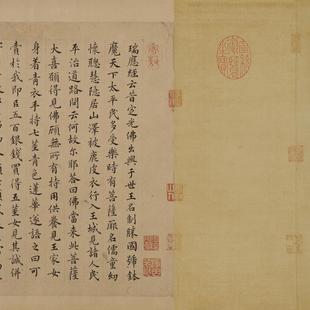 瑞應經云昔定光佛出興于世王名制勝國號鉢
魔天下太平民多受樂時有菩薩厥名儒童幼
懷聰慧隱居山澤被鹿皮衣行入王城見諸人民
平治道路問云何故尔耶答曰佛當來此菩薩
大喜願得見佛顧無所有持用供養見王家女
身着青衣手持七莖青色蓮華遂語之曰可
賣於我即以五百銀錢買得五莖女見其誠併